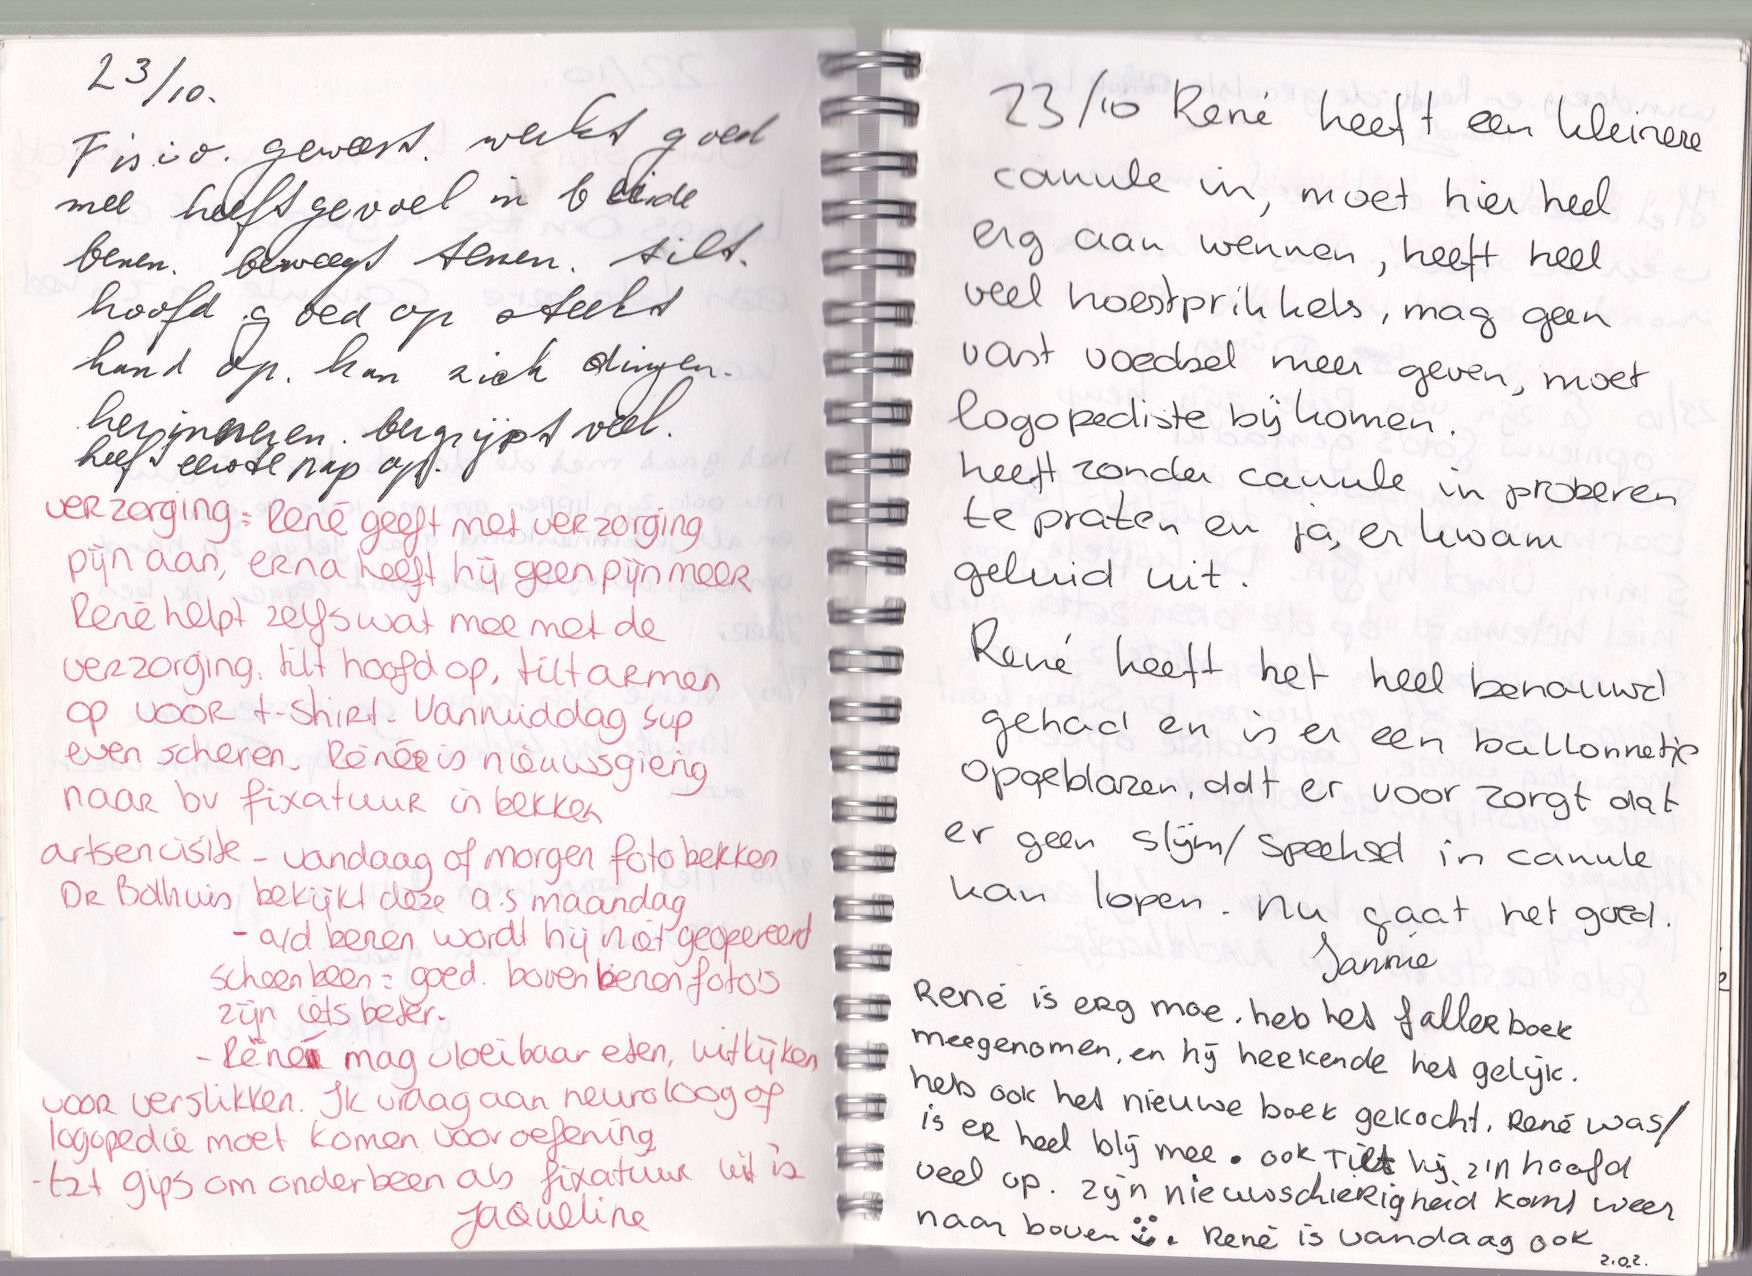 23/10.
Fisio. geweest. werkt goed
mee heeft gevoel in beide
benen. beweegt tenen. tilt.
hoofd goed op steekt
hand op. kan zich dingen.
herinneren. begrijpt veel.
heeft eerste nap op.
verzorging: René geeft met verzorging
pijn aan, erna heeft hij geen pijn meer
René helpt zelfs wat mee met de
verzorging. tilt hoofd op, tilt armen
op voor t-shirt. Vanmiddag sup
even scheren. René is nieuwsgierig
naar bv fixatuur in bekken
artsenvisite - vandaag of morgen foto bekken
Dr Bolhuis bekijkt deze a.s maandag
- a/d benen wordt hij niet geopereerd
scheenbeen = goed. bovenbenen foto's
zijn iets beter.
- René mag vloeibaar eten, uitkijken
voor verslikken. Ik vraag aan neuroloog of
logopedie moet komen voor oefening
- tzt gips om onderbeen als fixatuur uit is
Jaqueline
23/10 René heeft een kleinere
canule in, moet hier heel
erg aan wennen, heeft heel
veel hoestprikkels, mag geen
vast voedsel meer geven, moet
logopediste bij komen.
heeft zonder canule in proberen
te praten en ja, er kwam
geluid uit.
René heeft het heel benauwd
gehad en is er een ballonnetje
opgeblazen, ddt er voor zorgt dat
er geen slijm/speeksel in canule
kan lopen. Nu gaat het goed.
Jannie
René is erg moe. heb het fallerboek
meegenomen, en hij herkende het gelijk.
heb ook het nieuwe boek gekocht. René was/
is er heel blij mee. ook tilt hij z'n hoofd
veel op. zijn nieuwschierigheid komt weer
naar boven. René is vandaag ook
z.o.z.
2